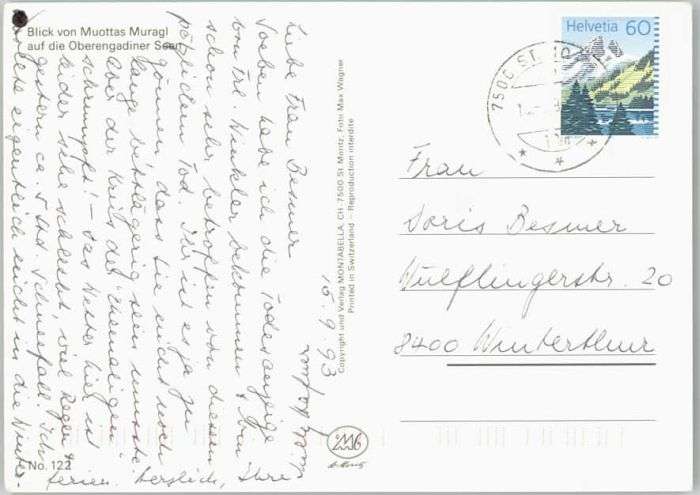 Blick von Muottas Muragl
auf die Oberengadiner Seen
Helvetia 60
7500 ST.
15.9.93
Liebe Frau Besmer
Soeben habe ich die Todesanzeige
von Frl. Winkler bekommen & bin
schon sehr betroffen von diesem
plötzlichen Tod. Ihr ist es ja zu
gönnen, dass sie nicht noch
lange bettlägerig sein musste,
aber der Kreis der "Ehemaligen"
schrumpft! – Das Wetter hier ist
leider sehr schlecht, viel Regen &
gestern ca. 5 Std. Schneefall. Ich
wollte eigentlich nicht in die Winter-
ferien. Herzlich, Ihre
Copyright und Verlag MONTABELLA, CH-7500 St. Moritz, Foto Max Wagner
Printed in Switzerland – Reproduction interdite
Frau
Doris Besmer
Wülflingerstr. 20
8400 Winterthur
No. 122